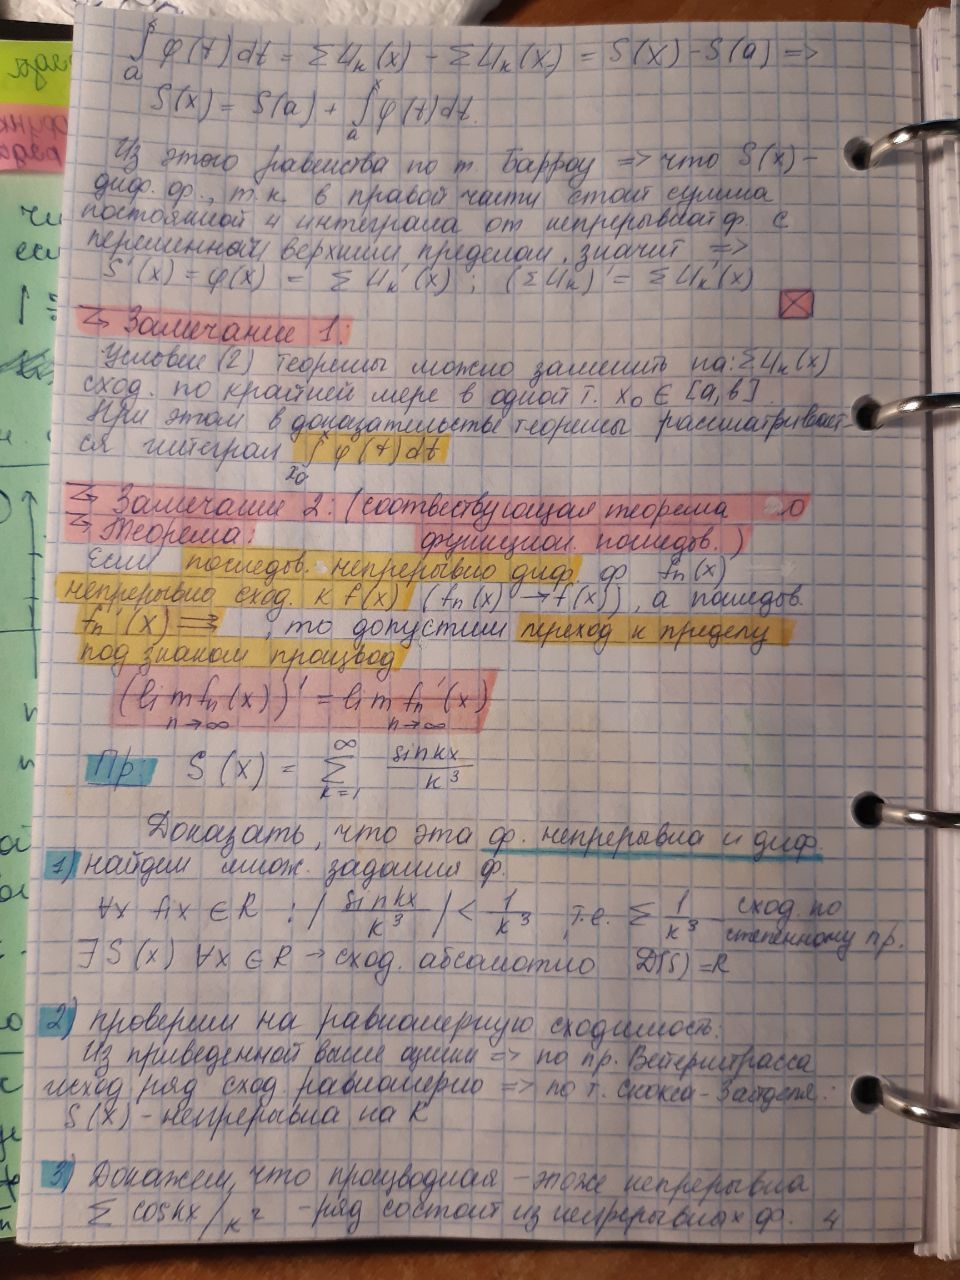 ∫ₐˣ φ(t)dt = Σ Uₖ(x) - Σ Uₖ(x) = S(x) - S(a) =>
S(x) = S(a) + ∫ₐˣ φ(t)dt.
Из этого равенства по т. Барроу => что S(x) -
диф. ф., т.к. в правой части стоит сумма
постоянной и интеграла от непрерывной ф. с
переменным верхним пределом, значит =>
S'(x) = φ(x) = Σ Uₖ'(x) ; (Σ Uₖ)' = Σ Uₖ'(x)
Замечание 1:
Условие (2) теоремы можно заменить на: Σ Uₖ(x)
сход. по крайней мере в одной т. x₀ ∈ [a, b].
При этом в доказательстве теоремы рассматривает-
ся интеграл ∫ₓ₀ˣ φ(t)dt
Замечание 2: (соотвествующая теорема о
Теорема: функцион. последов.)
Если последов. непрерывно диф. ф fₙ(x)
непрерывна сход. к f(x) (fₙ(x) → f(x)), а последов.
fₙ'(x) ⇉ , то допустим переход к пределу
под знаком производ
(lim fₙ(x))' = lim fₙ'(x)
n→∞ n→∞
Пр: S(x) = Σ sin kx / k³
k=1 ∞
Доказать, что эта ф. непрерывна и диф.
1) найдем множ. задания ф.
∀x fix ∈ R : | sin kx / k³ | < 1/k³ , т.е. Σ 1/k³ сход. по
степенному пр.
∃ S(x) ∀x ∈ R → сход. абсолютно D(S) = R
2) проверим на равномерную сходимость:
Из приведенной выше оценки => по пр. Вейерштрасса
исход ряд сход. равномерно => по т. Стокса-Зайделя:
S(x) - непрерывна на R
3) Докажем, что производная - тоже непрерывна
Σ cos kx / k² - ряд состоит из непрерывных ф. 4